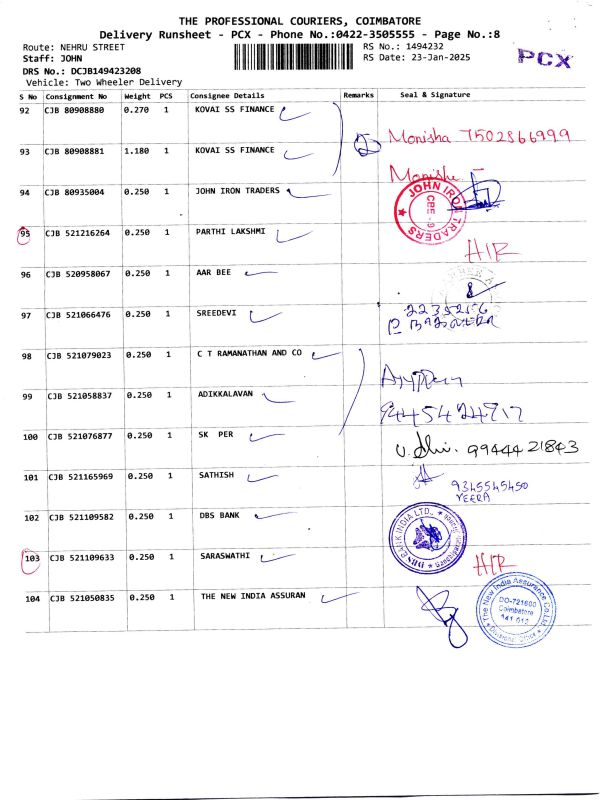 THE PROFESSIONAL COURIERS, COIMBATORE
Delivery Runsheet - PCX - Phone No.:0422-3505555 - Page No.:8
Route: NEHRU STREET
RS No.: 1494232
Staff: JOHN
RS Date: 23-Jan-2025
PCX
DRS No.: DCJB149423208
Vehicle: Two Wheeler Delivery
S No Consignment No Weight PCS Consignee Details Remarks Seal & Signature
92 CJB 80908880 0.270 1 KOVAI SS FINANCE
Monisha 7502866999
93 CJB 80908881 1.180 1 KOVAI SS FINANCE
94 CJB 80935004 0.250 1 JOHN IRON TRADERS
JOHN IRON TRADERS
95 CJB 521216264 0.250 1 PARTHI LAKSHMI
96 CJB 520958067 0.250 1 AAR BEE
97 CJB 521066476 0.250 1 SREEDEVI
98 CJB 521079023 0.250 1 C T RAMANATHAN AND CO
99 CJB 521058837 0.250 1 ADIKKALAVAN
9445424917
100 CJB 521076877 0.250 1 SK PER
99444 21843
101 CJB 521165969 0.250 1 SATHISH
9345545450
VEERA
102 CJB 521109582 0.250 1 DBS BANK
BANK INDIA LTD.,
103 CJB 521109633 0.250 1 SARASWATHI
104 CJB 521050835 0.250 1 THE NEW INDIA ASSURAN
The New India Assurance Co.Ltd
DO-721600
Coimbatore
641 012
Divisional Office